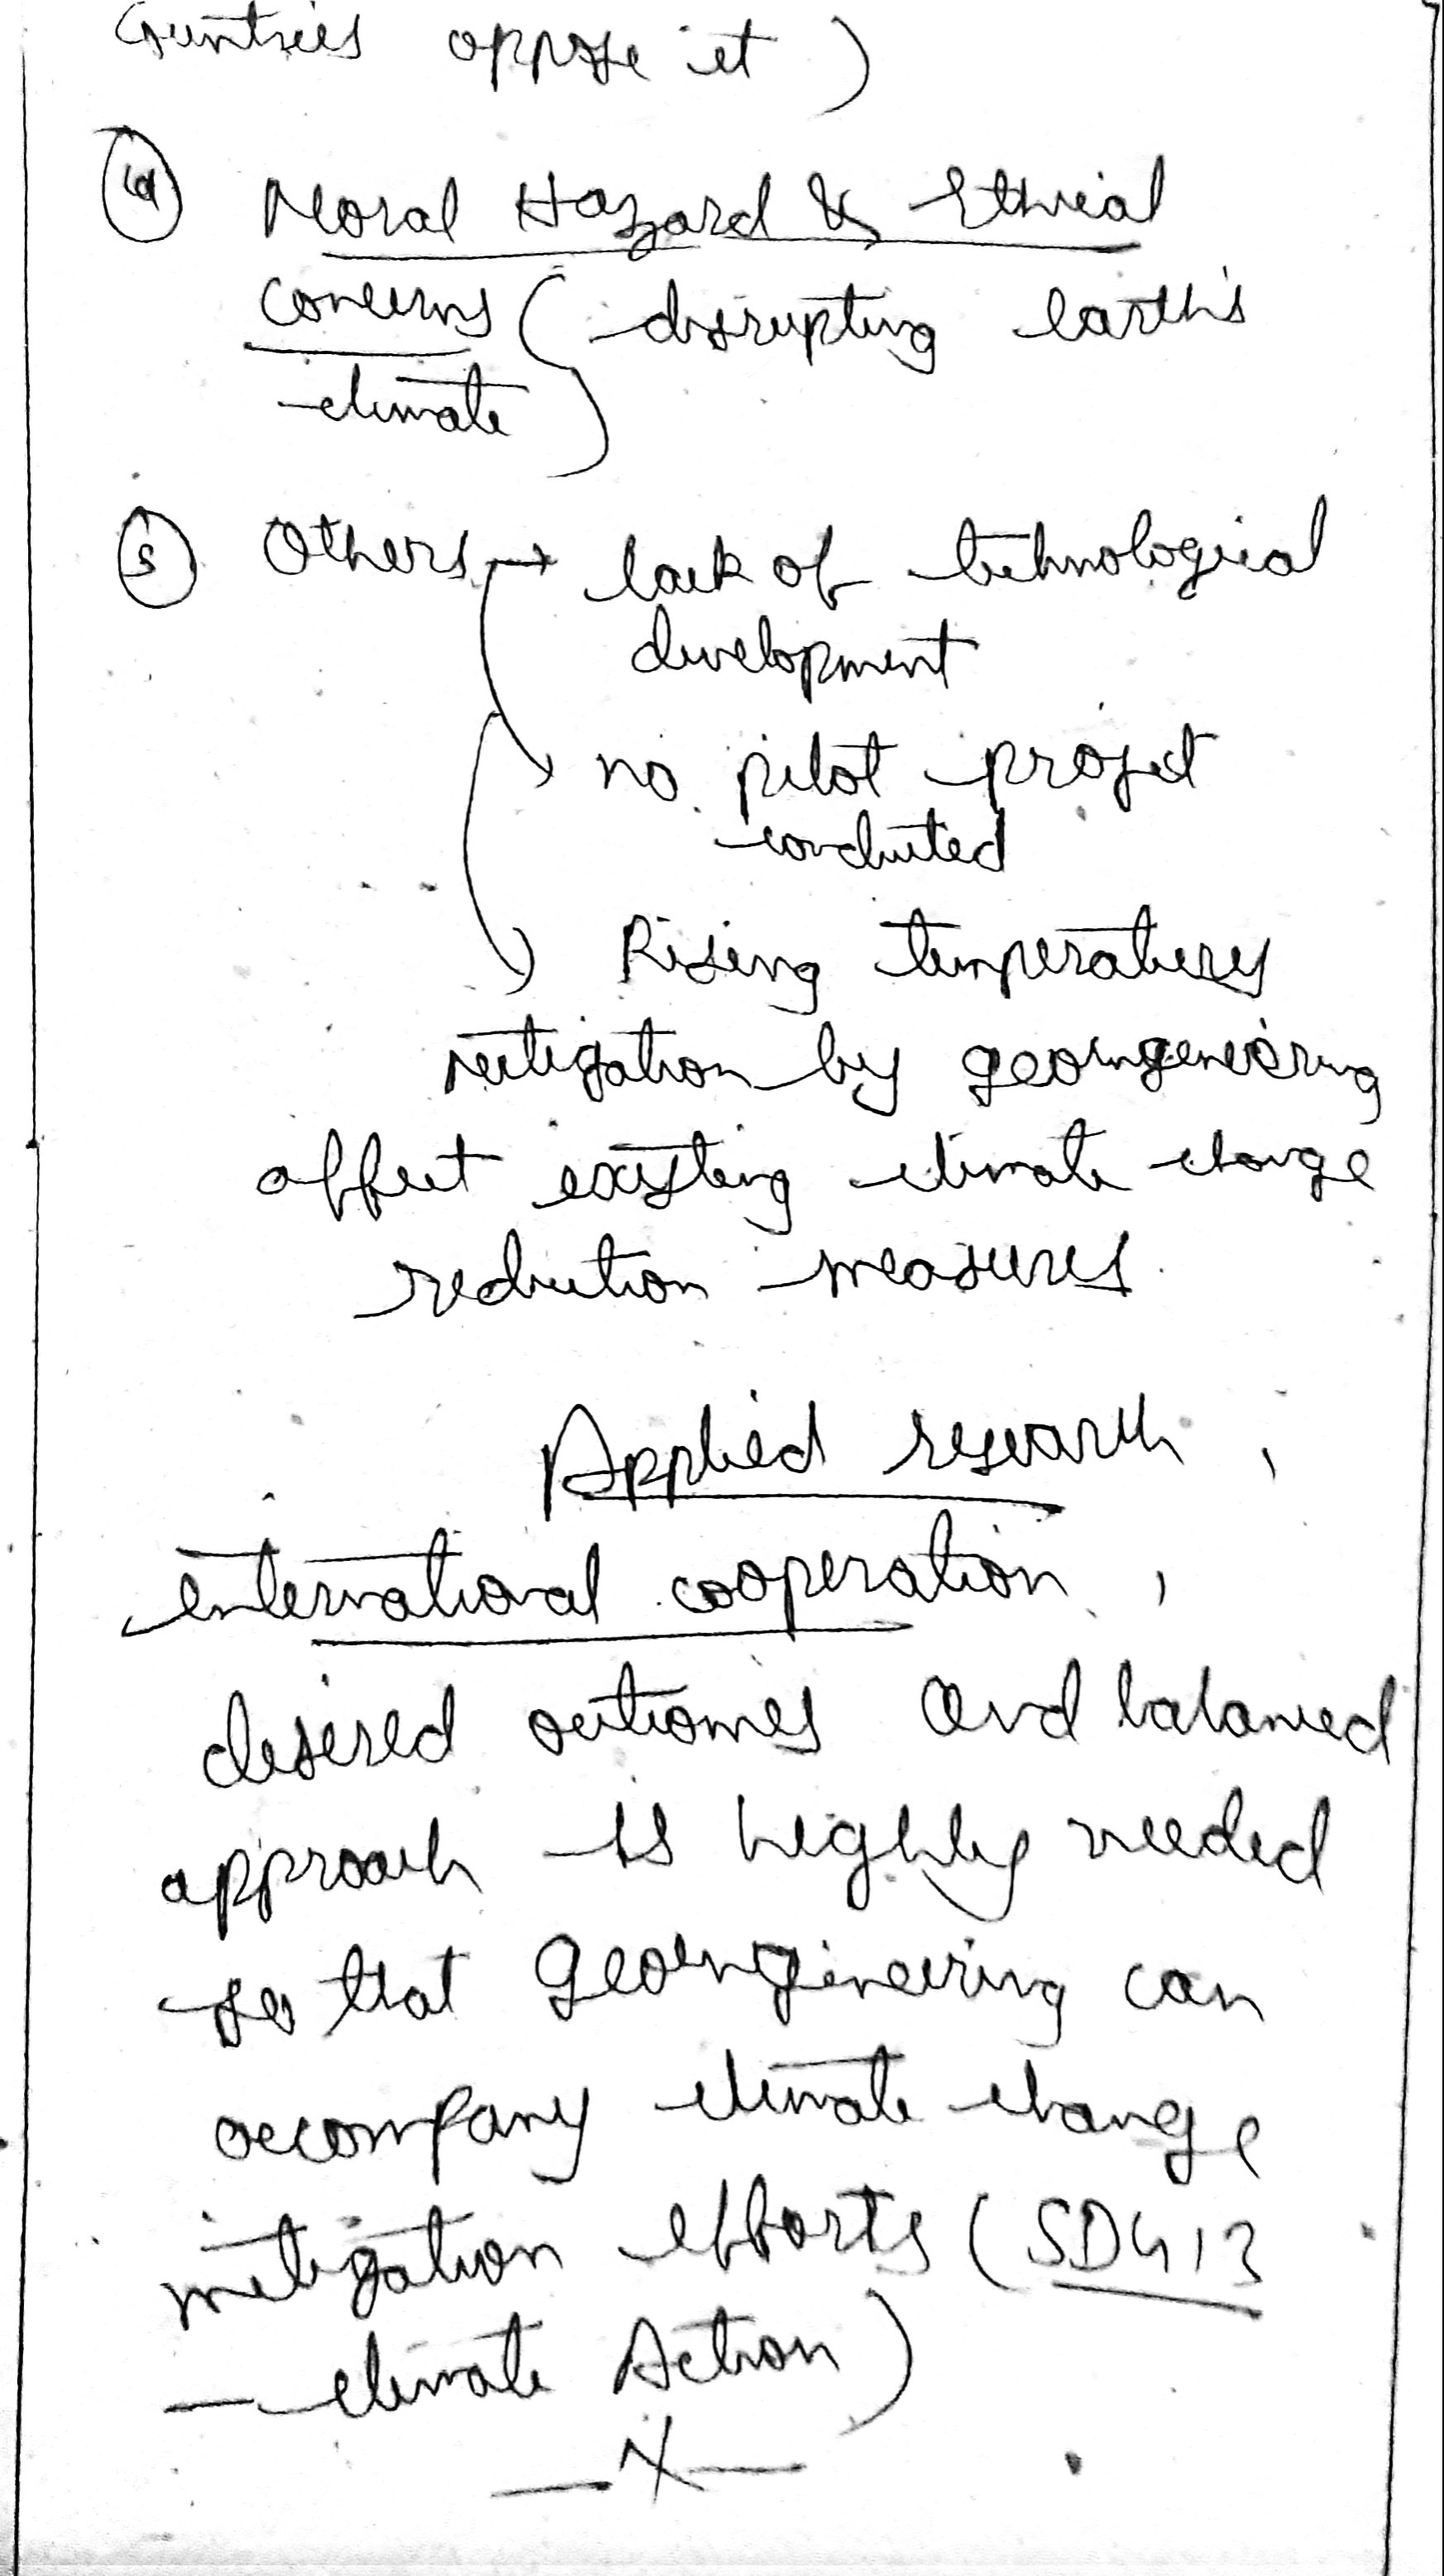 Countries oppose it)
④ Moral Hazard & Ethical
concerns (disrupting earth's
climate)
⑤ Others → lack of technological
development
→ no pilot project
conducted
→ Rising temperatures
mitigation by geoengineering
affect existing climate change
reduction measures.
Applied research,
international cooperation,
desired outcomes and balanced
approach is highly needed
so that geoengineering can
accompany climate change
mitigation efforts (SDG 13
— climate Action)
—x—